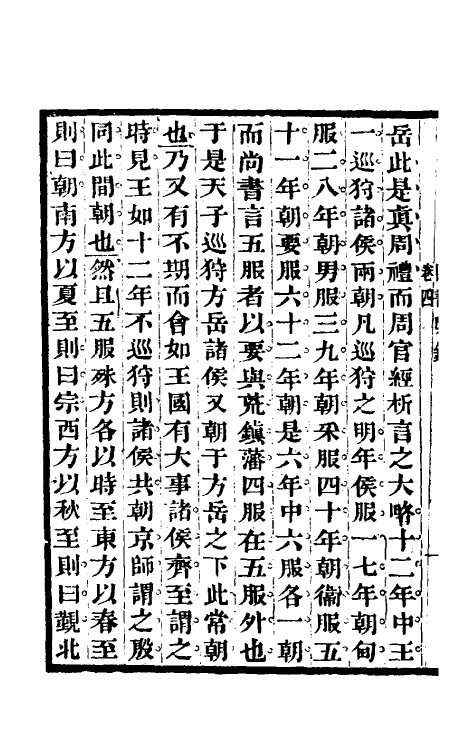 岳此是眞周禮而周官經析言之大略十二年中王
一巡狩諸侯兩朝凡巡狩之明年侯服一七年朝甸
服二八年朝男服三九年朝采服四十年朝衞服五
十一年朝要服六十二年朝是六年中六服各一朝
而尚書言五服者以要與荒鎭藩四服在五服外也
于是天子巡狩方岳諸侯又朝于方岳之下此常朝
也乃又有不期而會如王國有大事諸侯齊至謂之
時見王如十二年不巡狩則諸侯共朝京師謂之殷
同此間朝也然且五服殊方各以時至東方以春至
則曰朝南方以夏至則曰宗西方以秋至則曰覲北
卷四